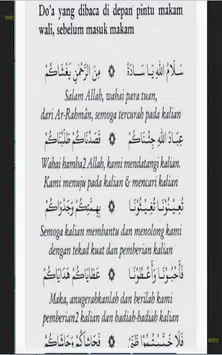 Do'a yang dibaca di depan pintu makam
wali, sebelum masuk makam
wes
سَلَامُ اللّٰهِ يَا سَادَةْ ۞ مِنَ الرَّحْمٰنِ يَغْشَاكُمْ
Salam Allah, wahai para tuan,
dari Ar-Rahmân, semoga tercurah pada kalian
عِبَادَ اللّٰهِ جِئْنَاكُمْ ۞ قَصَدْنَاكُمْ طَلَبْنَاكُمْ
Wahai hamba2 Allah, kami mendatangi kalian.
Kami menuju pada kalian & mencari kalian
تُعِيْنُوْنَا تُغِيْثُوْنَا ۞ بِهِمَّتِكُمْ وَجَدْوَاكُمْ
Semoga kalian membantu dan menolong kami
dengan tekad kuat dan pemberian kalian
فَأَحْبُوْنَا وَأَعْطُوْنَا ۞ عَطَايَاكُمْ هَدَايَاكُمْ
Maka, anugerahkanlah dan berilah kami
pemberian2 kalian dan hadiah-hadiah kalian
فَلَا خَيَّبْتُمُوْا ظَنِّيْ ۞ فَحَاشَاكُمْ وَحَاشَاكُمْ
wes